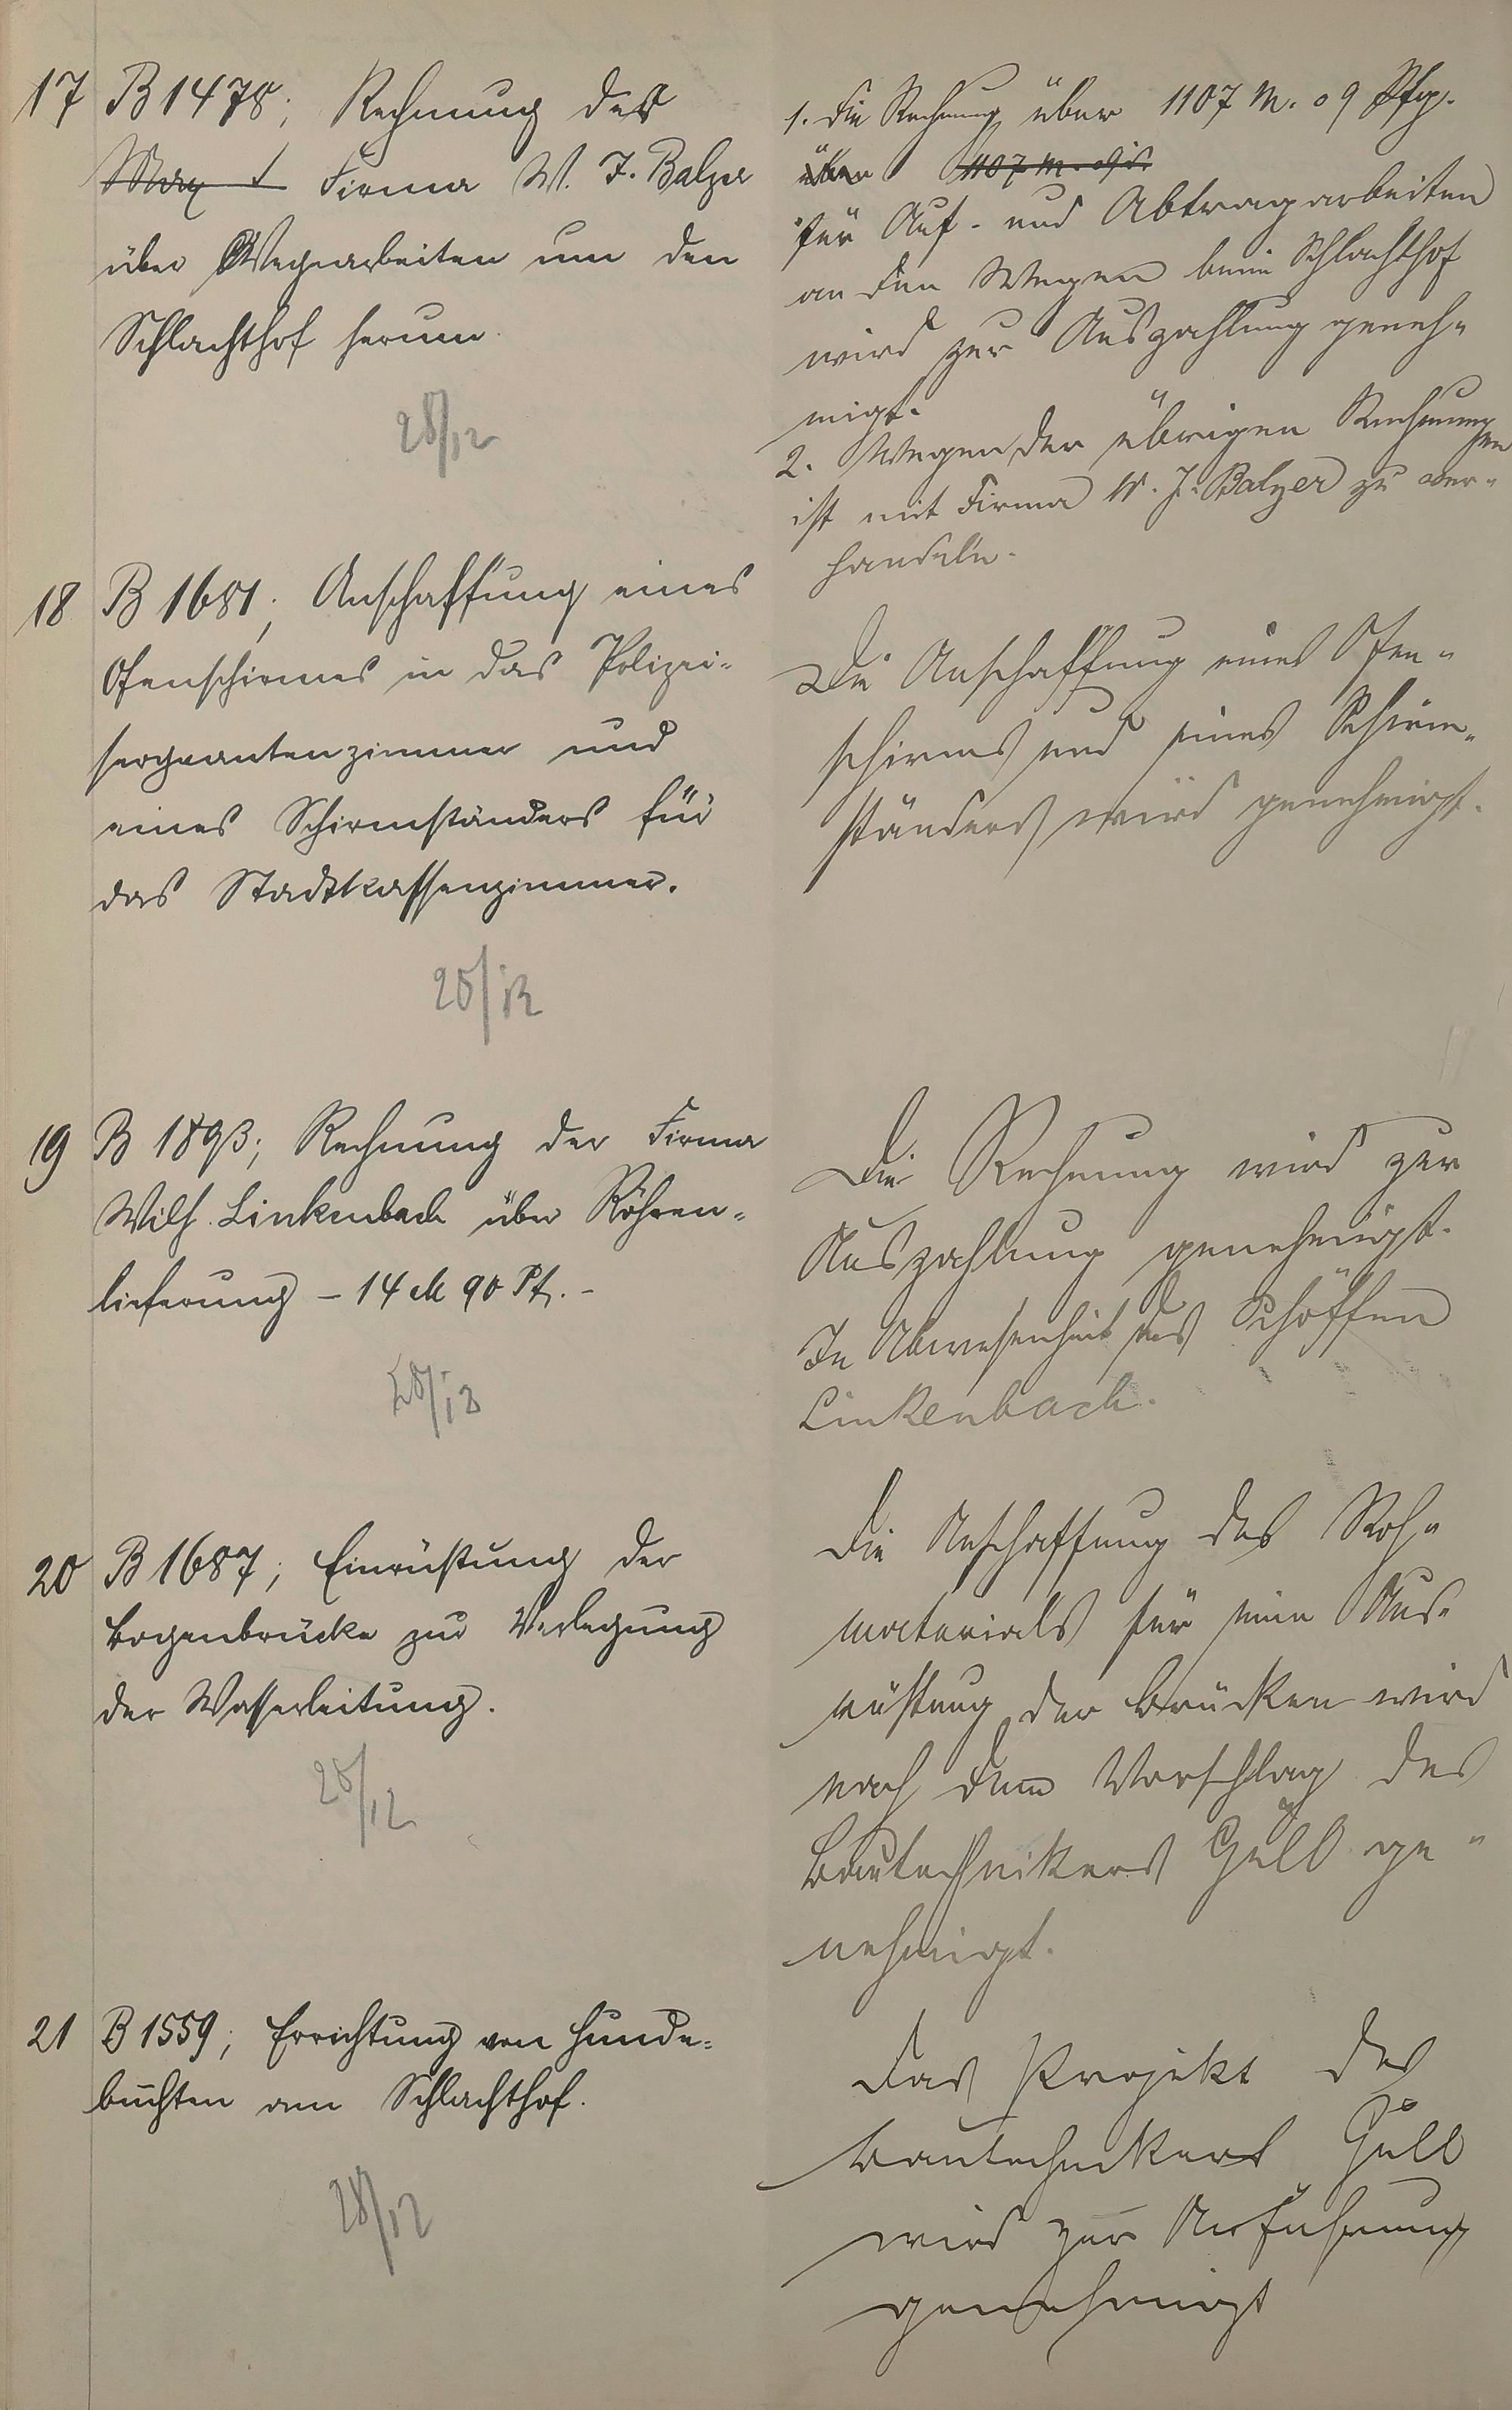 17 B 1478; Rechnung der
Max Firma W. J. Balzer
über Wegearbeiten um den
Schlachthof herum.
28/12
1. Die Rechnung über 1107 M. 09 Pfg.
über 1107 M. 09
für Auf- und Abtragarbeiten
an den Wegen beim Schlachthof
wird zur Auszahlung geneh-
migt.
2. Wegen der übrigen Rechnungen
ist mit Firma W. J. Balzer zu ver-
handeln.
18 B 1681; Anschaffung eines
Ofenschirmes in das Polizei-
sergeantenzimmer und
eines Schirmständers für
das Stadtkassenzimmer.
28/12
Die Anschaffung eines Ofen-
schirms und eines Schirm-
ständers wird genehmigt.
19 B 1893; Rechnung der Firma
Wilh. Linkenbach über Röhren-
lieferung - 14 M 90 Pf. -
28/12
Die Rechnung wird zur
Auszahlung genehmigt.
In Abwesenheit des Schöffen
Linkenbach.
20 B 1687; Einrüstung der
Bogenbrücke zur Verlegung
der Wasserleitung.
28/12
Die Anschaffung des Roh-
materials für eine Aus-
rüstung der Brücken wird
nach dem Vorschlag des
Bautechnikers Güll ge-
nehmigt.
21 B 1559; Errichtung von Hunde-
buchten am Schlachthof.
28/12
Das Projekt des
Bautechnikers Güll
wird zur Ausführung
genehmigt